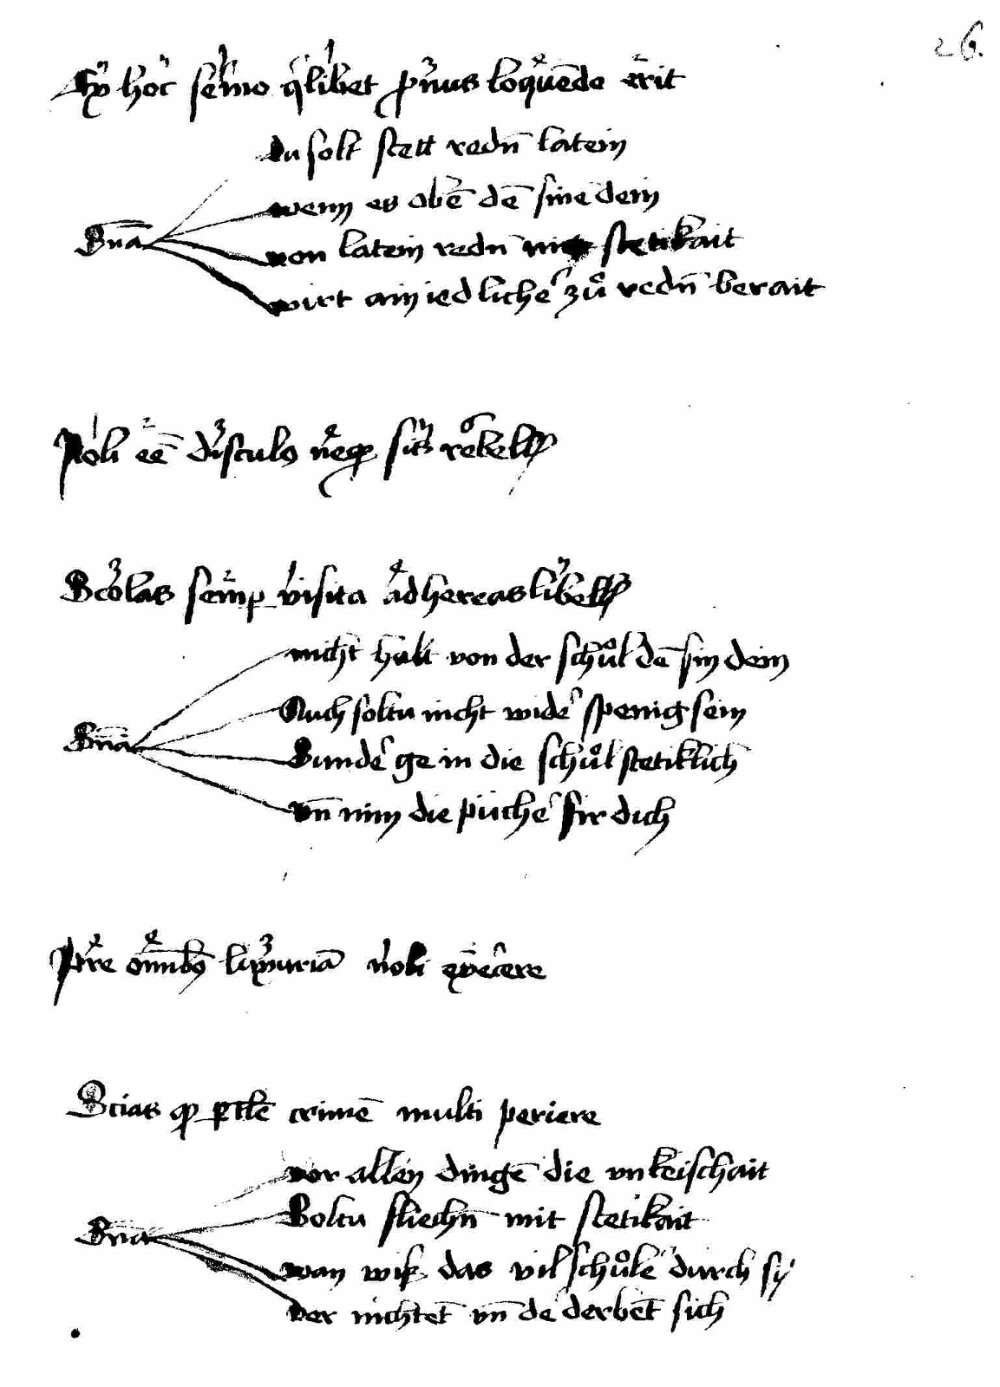 26.
Ex hoc sermo qlibet prius loquēdo erit
du solt stett redn̄ latein
wenn es obē dē sine dein
Sn̄a
von latein redn̄ mit stetikait
wirt ain iedlicher zů redn̄ berait
Noli eē discolus neqꝫ sis rebellis
Scolas semp visita adhereas libellis
nicht halt von der schůl dē sin dein
Auch soltu nicht wider spenig sein
Sn̄a
Sunder ge in die schůl stetiklich
vn̄ nim die pücher für dich
Pre omnibꝫ luxuriā noli exēcere
Scias qꝫ ꝑ tale crimē multi periere
vor allen dingē die vnkeischait
Soltu fliechn̄ mit stetikait
Sn̄a
wan wiß das vil schůler durch sy
ver nichtet vn̄ de derbet sich